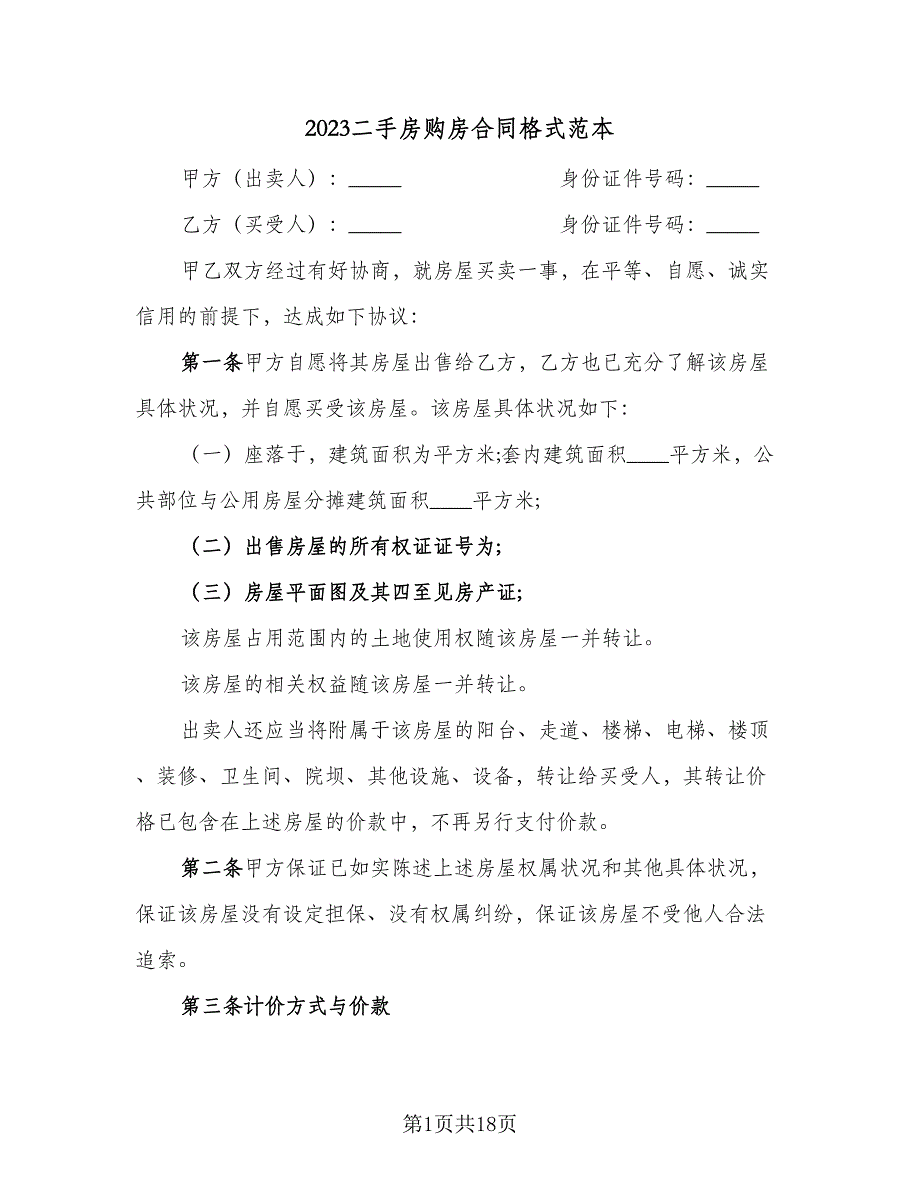 2023二手房购房合同格式范本
甲方（出卖人）：_____ 身份证件号码：_____
乙方（买受人）：_____ 身份证件号码：_____
甲乙双方经过有好协商，就房屋买卖一事，在平等、自愿、诚实
信用的前提下，达成如下协议：
第一条甲方自愿将其房屋出售给乙方，乙方也已充分了解该房屋
具体状况，并自愿买受该房屋。该房屋具体状况如下：
（一）座落于，建筑面积为平方米;套内建筑面积____平方米，公
共部位与公用房屋分摊建筑面积____平方米;
（二）出售房屋的所有权证证号为;
（三）房屋平面图及其四至见房产证;
该房屋占用范围内的土地使用权随该房屋一并转让。
该房屋的相关权益随该房屋一并转让。
出卖人还应当将附属于该房屋的阳台、走道、楼梯、电梯、楼顶
、装修、卫生间、院坝、其他设施、设备，转让给买受人，其转让价
格已包含在上述房屋的价款中，不再另行支付价款。
第二条甲方保证已如实陈述上述房屋权属状况和其他具体状况，
保证该房屋没有设定担保、没有权属纠纷，保证该房屋不受他人合法
追索。
第三条计价方式与价款
第1页共18页